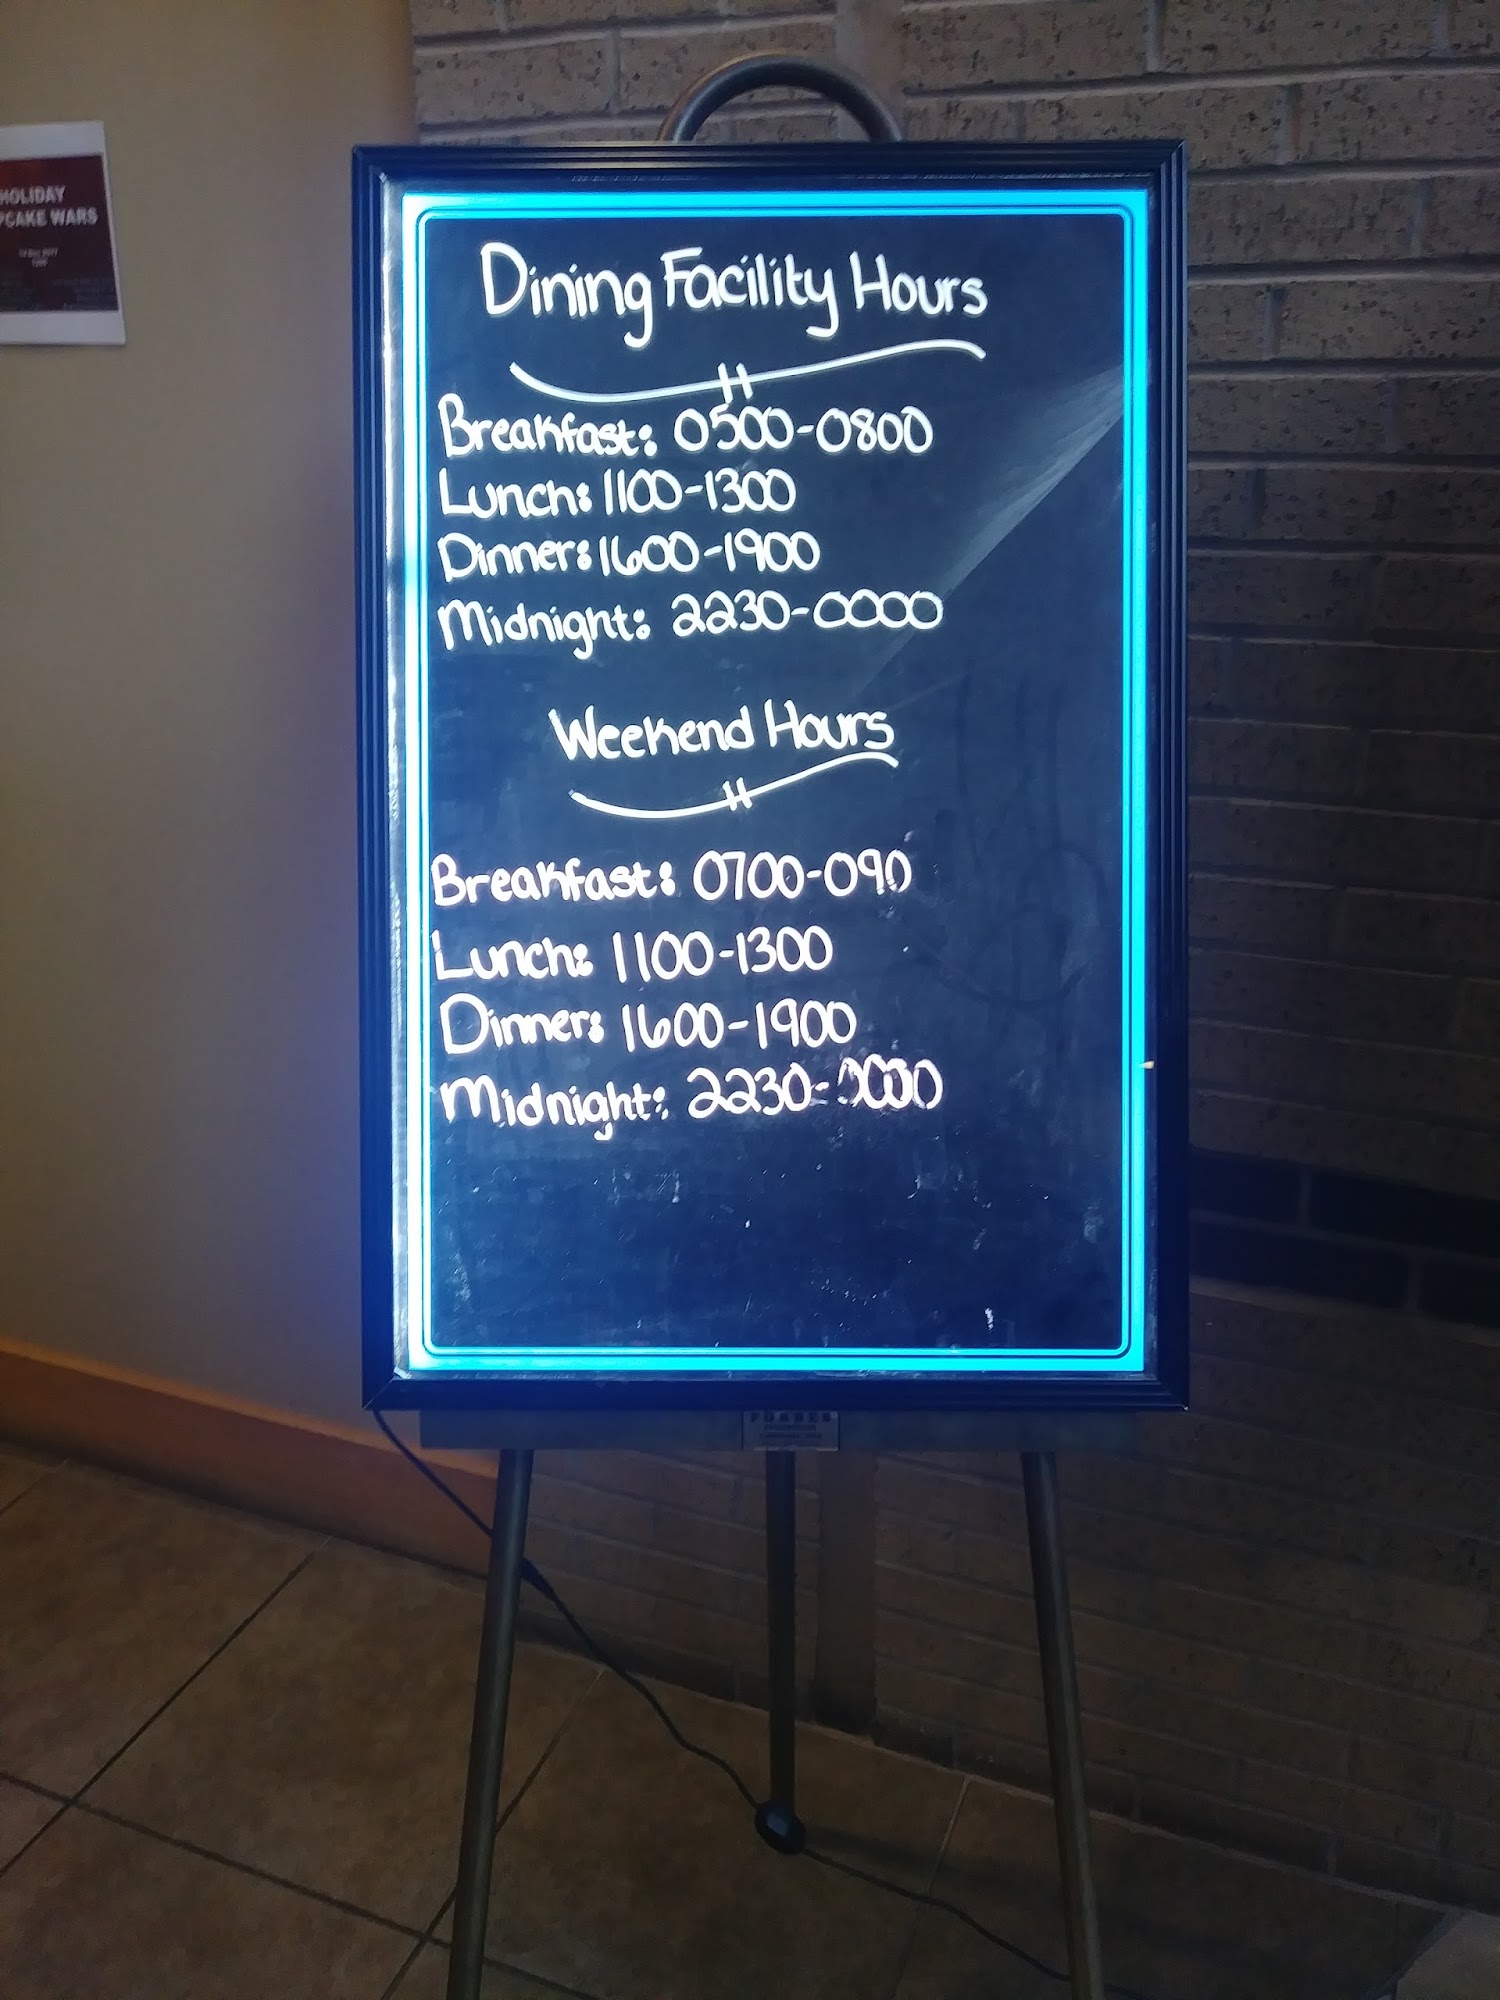 HOLIDAY
PCAKE WARS
Dining Facility Hours
Breakfast: 0500-0800
Lunch: 1100-1300
Dinner: 1600-1900
Midnight: 2230-0000
Weekend Hours
Breakfast: 0700-090
Lunch: 1100-1300
Dinner: 1600-1900
Midnight: 2230-